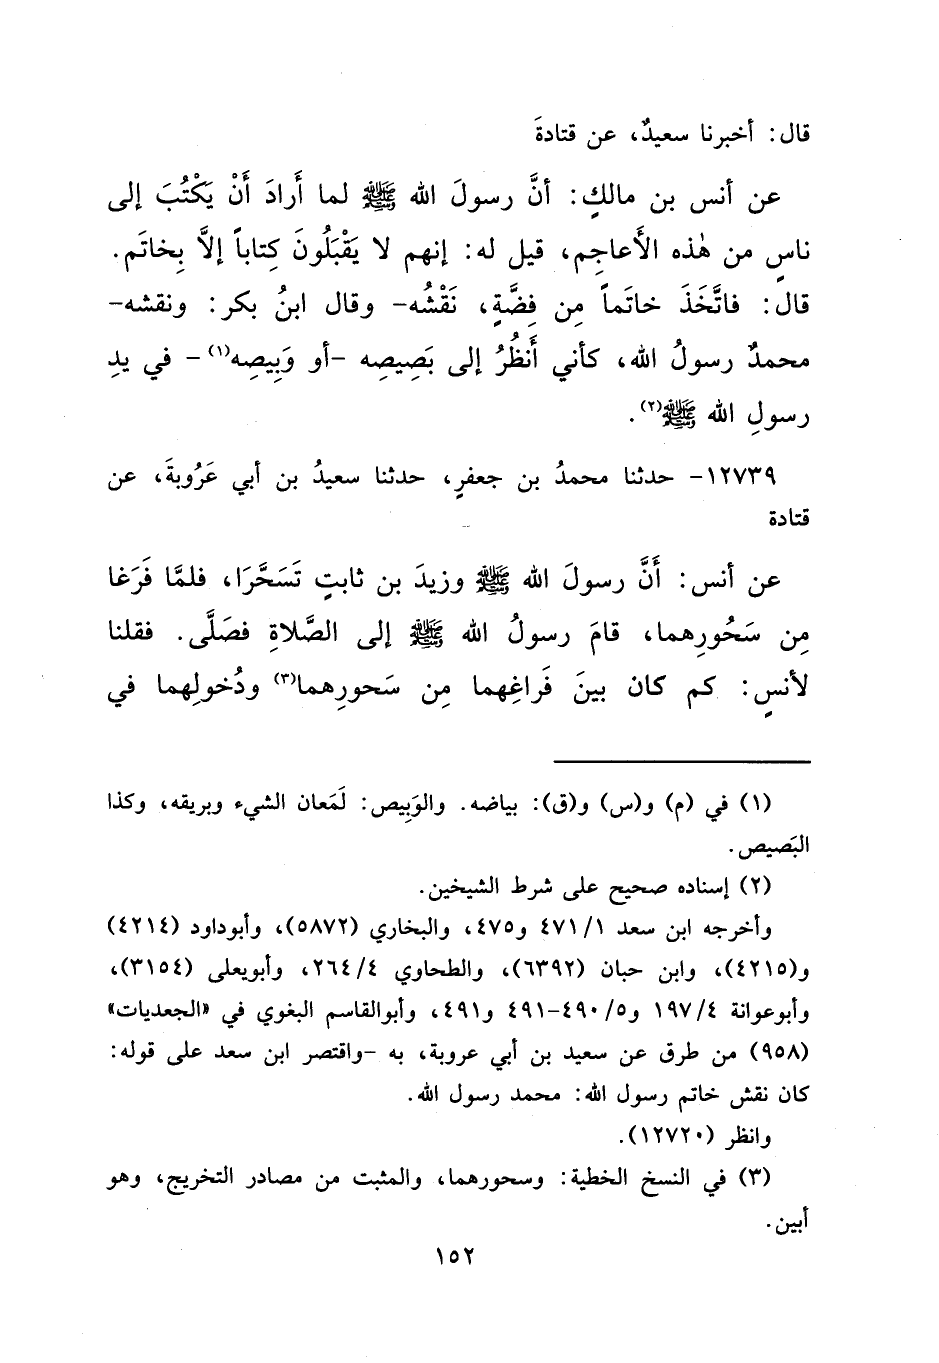 قال: أخبرنا سعيدٌ، عن قتادةَ
عن أنس بن مالكٍ: أنَّ رسولَ الله ﷺ لما أَرادَ أَنْ يَكْتُبَ إلى
ناسٍ من هٰذه الأَعاجِم، قيل له: إنهم لا يَقْبَلُونَ كِتاباً إلَّا بِخاتَم.
قال: فاتَّخَذَ خاتَماً مِن فِضَّةٍ، نَقْشُه- وقال ابنُ بكر: ونقشه-
محمدٌ رسولُ الله، كأني أَنظُرُ إلى بَصِيصِه -أو وَبِيصِه(١)- في يدِ
رسولِ الله ﷺ(٢).
١٢٧٣٩- حدثنا محمدُ بن جعفرٍ، حدثنا سعيدُ بن أبي عَرُوبةَ، عن
قتادة
عن أنس: أَنَّ رسولَ الله ﷺ وزيدَ بن ثابتٍ تَسَحَّرَا، فلمَّا فَرَغا
مِن سَحُورِهما، قامَ رسولُ الله ﷺ إلى الصَّلاةِ فصَلَّى. فقلنا
لأنسٍ: كم كان بينَ فَراغِهما مِن سَحورِهما(٣) ودُخولِهما في
(١) في (م) و(س) و(ق): بياضه. والوَبِيص: لَمَعان الشيء وبريقه، وكذا
البَصيص.
(٢) إسناده صحيح على شرط الشيخين.
وأخرجه ابن سعد ٤٧١/١ و٤٧٥، والبخاري (٥٨٧٢)، وأبوداود (٤٢١٤)
و(٤٢١٥)، وابن حبان (٦٣٩٢)، والطحاوي ٢٦٤/٤، وأبويعلى (٣١٥٤)،
وأبوعوانة ١٩٧/٤ و٤٩٠/٥-٤٩١ و٤٩١، وأبوالقاسم البغوي في «الجعديات»
(٩٥٨) من طرق عن سعيد بن أبي عروبة، به -واقتصر ابن سعد على قوله:
كان نقش خاتم رسول الله: محمد رسول الله.
وانظر (١٢٧٢٠).
(٣) في النسخ الخطية: وسحورهما، والمثبت من مصادر التخريج، وهو
أبين.
١٥٢